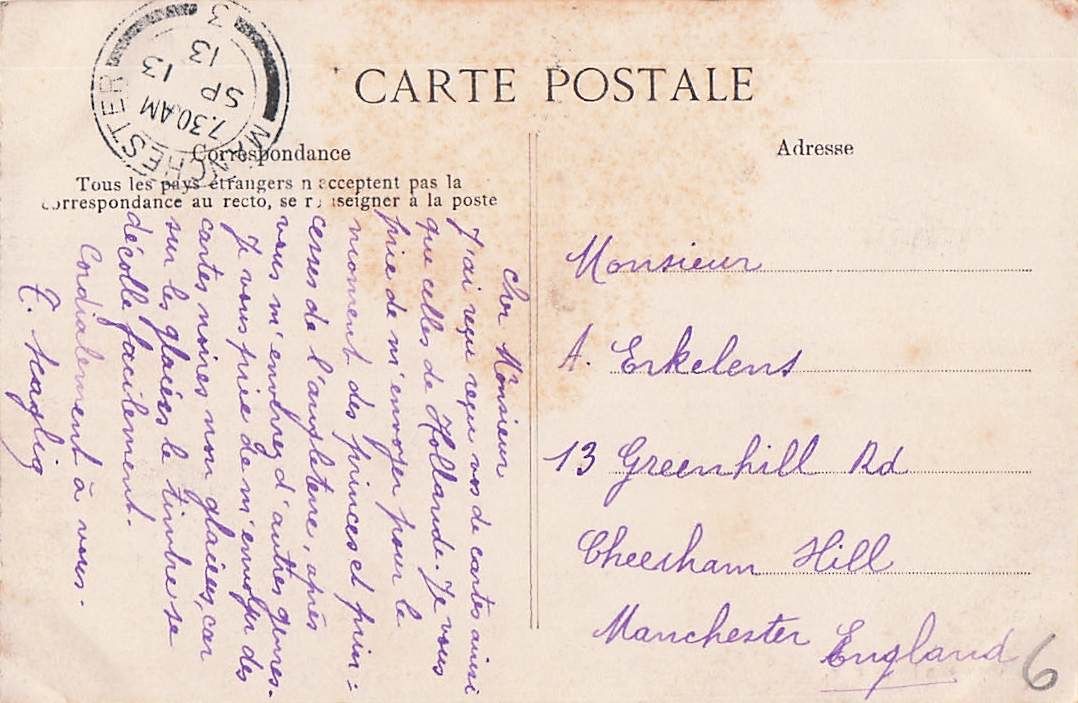 CARTE POSTALE
MANCHESTER
7.30AM
SP 13
13
3
Correspondance
Tous les pays étrangers n'acceptent pas la
correspondance au recto, se renseigner à la poste
Adresse
Cher Monsieur
J'ai reçu reçu vos de cartes ainsi
que celles de Hollande. Je vous
prie de m'envoyer pour le
moment des princes et prin=
cesses de l'angleterre, après
vous m'enverrez d'autres genres.
Je vous prie de m'envoyer des
cartes noires non glacées, car
sur les glacées le timbre se
décolle facilement.
Cordialement à vous.
Monsieur
A. Erkelens
13 Greenhill Rd
Cheesham Hill
Manchester England
6